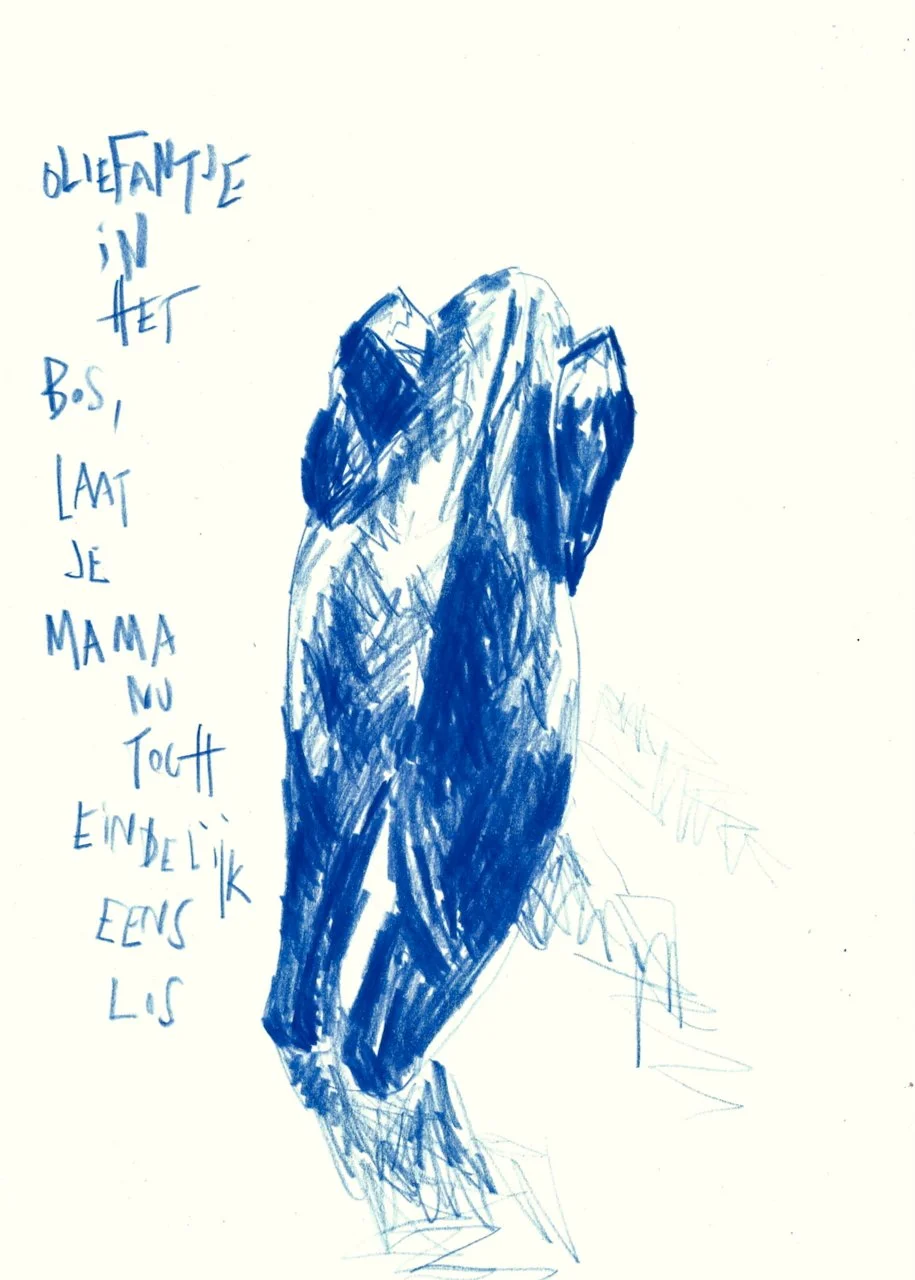 OLIEFANTJE
iN
HET
BOS,
LAAT
JE
MAMA
NU
TOCH
EINDELIJK
EENS
LOS